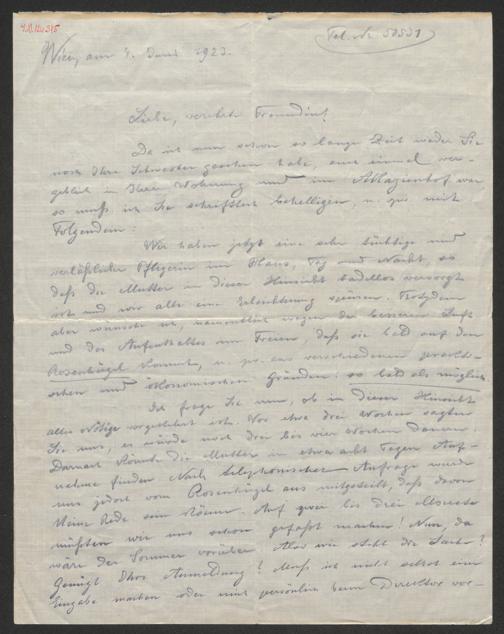 Tel. Nr 50531
Wien, am 4. Juni 1923.
Liebe, verehrte Freundin!
Da ich nun schon so lange Zeit weder Sie
noch Ihre Schwester gesehen habe, auch einmal ver-
geblich in Ihrer Wohnung und im war,
so muß ich Sie schriftlich behelligen, u. zwar mit
Folgendem:
Wir haben jetzt eine sehr tüchtige und
verläßliche Pflegerin im Haus, Tag und Nacht, so
daß die Mutter in dieser Hinsicht tadellos versorgt
ist und wir alle eine Erleichterung Trotzdem
aber wünsche ich, namentlich wegen der besseren Luft
und des Aufenthaltes im Freien, daß sie bald auf den
Rosenhügel kommt, u. zw. aus verschiedenen prakti-
schen und ökonomischen Gründen: so bald als möglich.
Ich frage Sie nun, ob in dieser Hinsicht
alles Nötige vorgekehrt ist. Vor etwa drei Wochen sagten
Sie uns, es würde noch drei bis vier Wochen dauern.
Darnach könnte die Mutter in etwa acht Tagen Auf-
nahme finden. Nach telephonischer Anfrage wurde
uns jedoch vom Rosenhügel aus mitgeteilt, daß davon
keine Rede sein könne. Auf zwei bis drei Monate
müßten wir uns schon gefaßt machen! Nun, da
wäre der Sommer vorüber. Also wie steht die Sache?
Genügt Ihre Anmeldung? Muß ich nicht selbst eine
Eingabe machen oder mich persönlich beim Direktor vor-